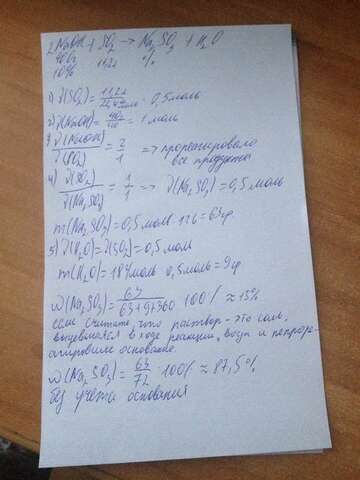 2NaOH + SO₂ → Na₂SO₃ + H₂O
400г 11,2л %
10%
1) ν(SO₂) = 11,2л / 22,4л/моль = 0,5 моль
2) ν(NaOH) = 40г / 40 = 1 моль
3) ν(NaOH) / ν(SO₂) = 2 / 1 => прореагировало
все продукты
4) ν(SO₂) / ν(Na₂SO₃) = 1 / 1 => ν(Na₂SO₃) = 0,5 моль
m(Na₂SO₃) = 0,5 моль · 126 = 63гр
5) ν(H₂O) = ν(SO₂) = 0,5 моль
m(H₂O) = 18г/моль · 0,5моль = 9гр
ω(Na₂SO₃) = 63 / 63+9+360 · 100% ≈ 15%
если считать, что раствор - это соль,
в ходе реакции, вода и
основание
ω(Na₂SO₃) = 63 / 72 · 100% ≈ 87,5%
без учета основания